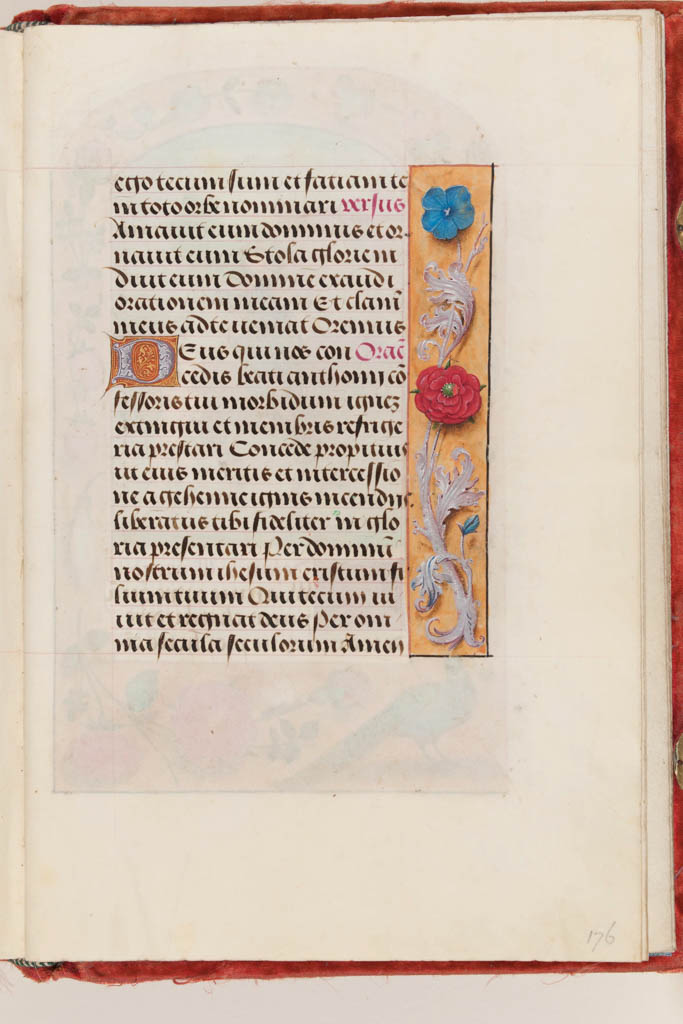 ego tecum sum et faciam te
in toto orbe nominari versus
Amavit eum dominus et or
navit eum Stola glorie in
duit eum Domine exaudi
orationem meam Et clam̄
meus ad te veniat Oremus
Deus qui nos con Orac̄
cedis beati anthonij cō
fessoris tui morbidum ignez
extingui et membris refrige
ria prestari Concede propitius
ut eius meritis et intercessio
ne a gehenne ignis incendijs
liberatus tibi fideliter in glo
ria presentari Per dominū
nostrum ihesum cristum fi
lium tuum Qui tecum ui
uit et regnat deus Per om
nia secula seculorum Amen
176